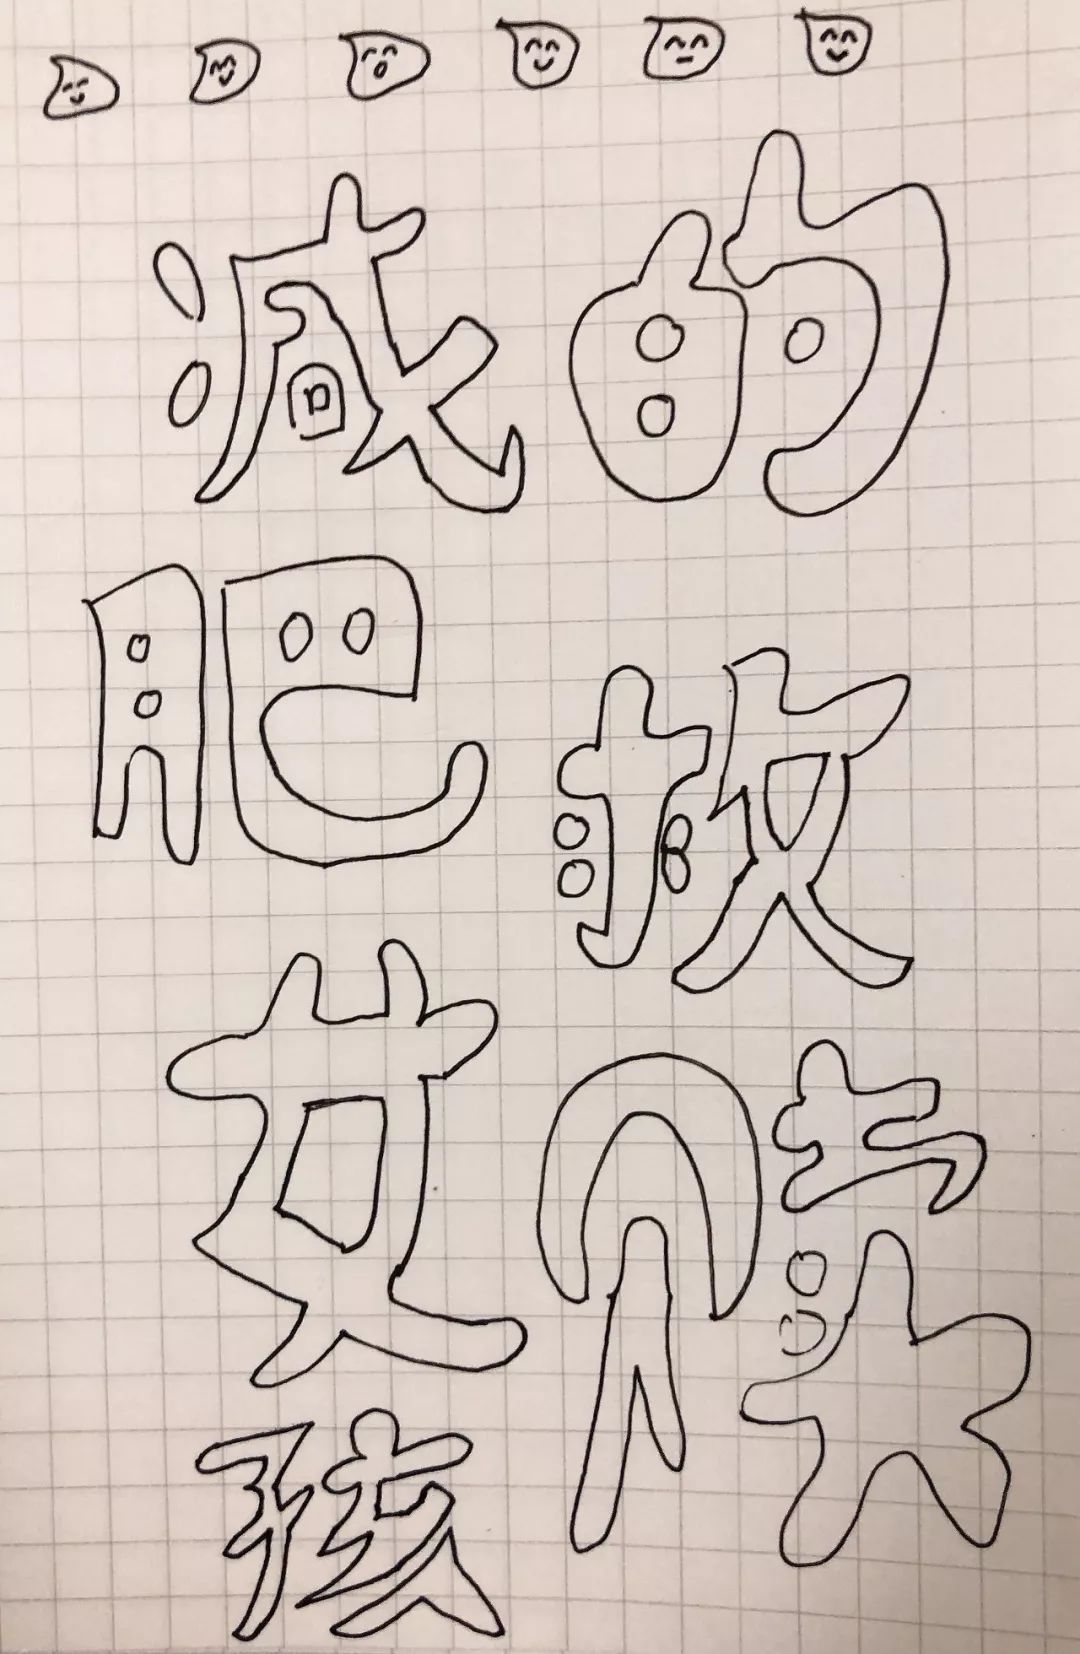 减肥女孩
的救赎